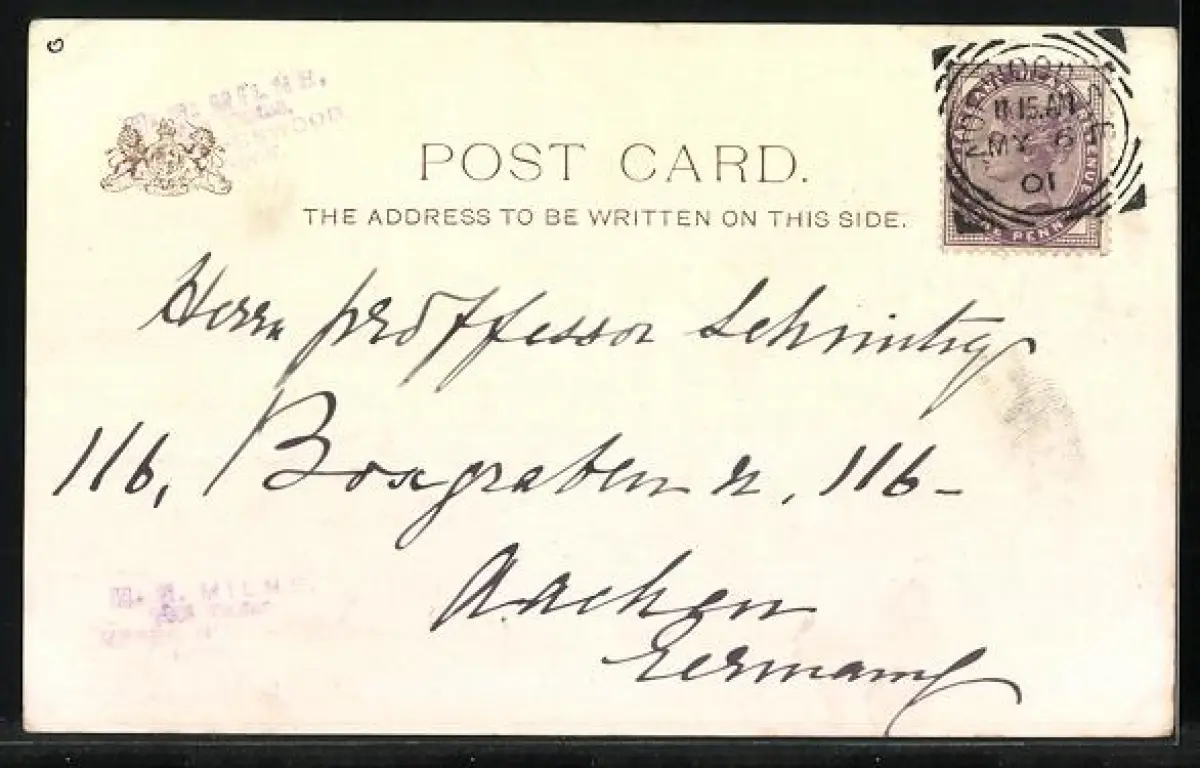 MILNE.
POST CARD.
THE ADDRESS TO BE WRITTEN ON THIS SIDE.
11.15.AM
MY 6
01
PENNY
Herrn proffessor
116, Boxgraben n, 116-
Aachen
Germany
MILNE.